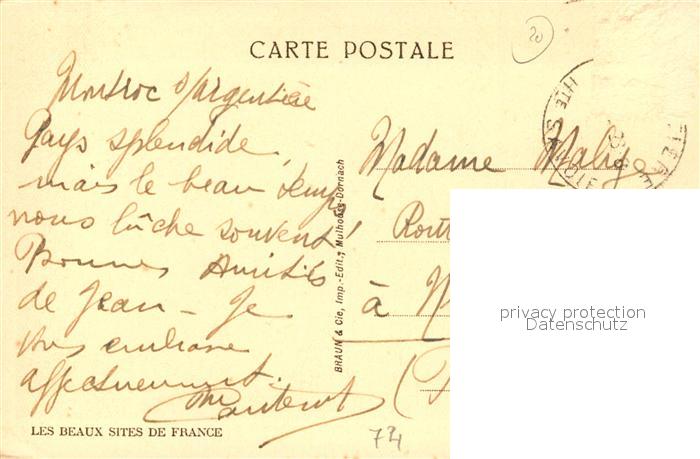 CARTE POSTALE
20
Montroc s/Argentière
Pays splendide,
mais le beau temps
nous lâche souvent!
Bonnes Amitiés
de Jean - Je
vous embrasse
affectueusement.
Madame
Rout
à
BRAUN & Cie, Imp.-Edit., Mulhouse-Dornach
HTE SAVOIE
privacy protection
Datenschutz
LES BEAUX SITES DE FRANCE
74